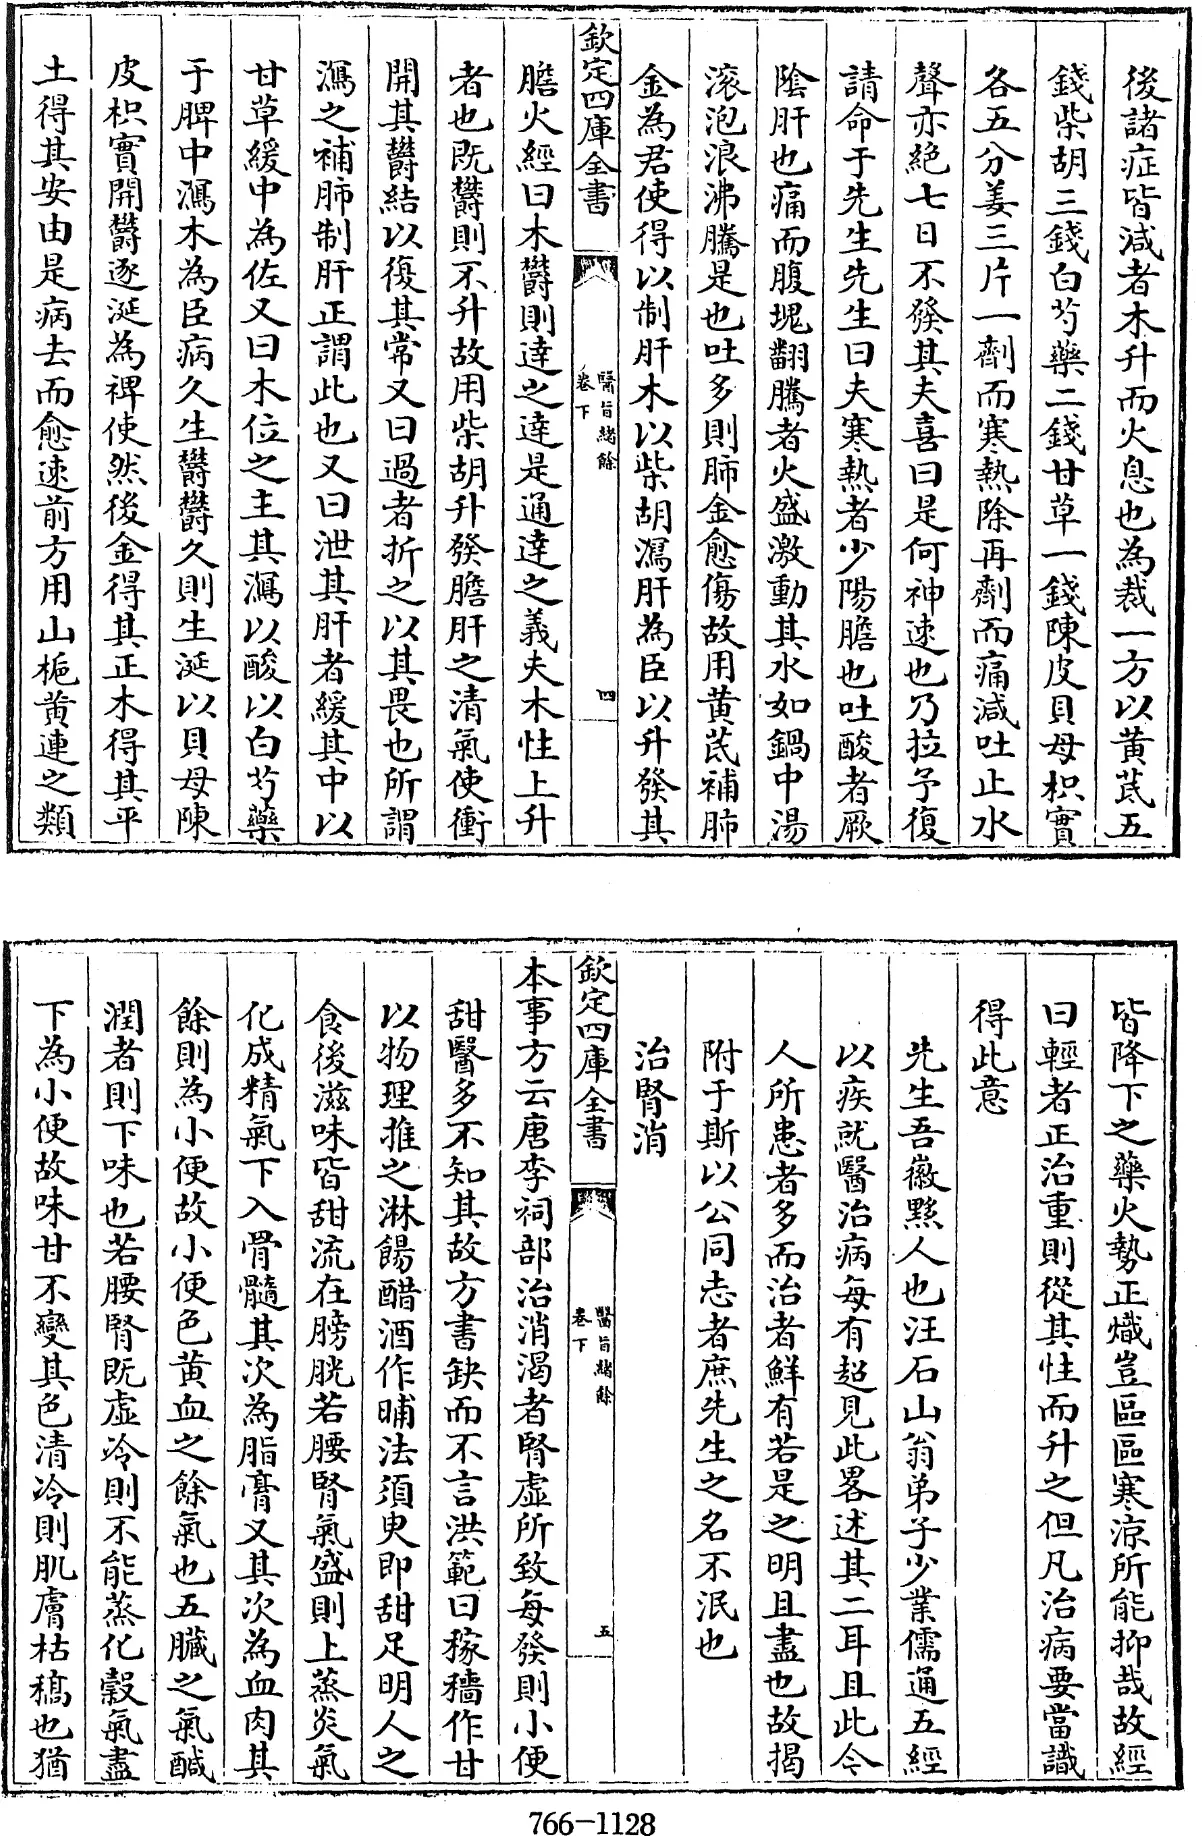 後諸症皆減者木升而火息也為裁一方以黃芪五
錢柴胡三錢白芍藥二錢甘草一錢陳皮貝母枳實
各五分姜三片一劑而寒熱除再劑而痛減吐止水
聲亦絕七日不發其夫喜曰是何神速也乃拉予復
請命于先生先生曰夫寒熱者少陽膽也吐酸者厥
陰肝也痛而腹塊翻騰者火盛激動其水如鍋中湯
滚泡浪沸騰是也吐多則肺金愈傷故用黃芪補肺
金為君使得以制肝木以柴胡瀉肝為臣以升發其
欽定四庫全書
醫旨緒餘
卷下
四
膽火經曰木欝則達之達是通達之義夫木性上升
者也既欝則不升故用柴胡升發膽肝之清氣使衝
開其欝結以復其常又曰過者折之以其畏也所謂
瀉之補肺制肝正謂此也又曰泄其肝者緩其中以
甘草緩中為佐又曰木位之主其瀉以酸以白芍藥
于脾中瀉木為臣病久生欝欝久則生涎以貝母陳
皮枳實開欝逐涎為裨使然後金得其正木得其平
土得其安由是病去而愈速前方用山梔黃連之類
皆降下之藥火勢正熾豈區區寒涼所能抑哉故經
曰輕者正治重則從其性而升之但凡治病要當識
得此意
先生吾徽黟人也汪石山翁弟子少業儒通五經
以疾就醫治病每有超見此畧述其二耳且此今
人所患者多而治者鮮有若是之明且盡也故揭
附于斯以公同志者庶先生之名不泯也
治腎消
欽定四庫全書
醫旨緒餘
卷下
五
本事方云唐李祠部治消渴者腎虛所致每發則小便
甜醫多不知其故方書缺而不言洪範曰稼穡作甘
以物理推之淋餳醋酒作脯法須臾即甜足明人之
食後滋味皆甜流在膀胱若腰腎氣盛則上蒸炎氣
化成精氣下入骨髓其次為脂膏又其次為血肉其
餘則為小便故小便色黃血之餘氣也五臟之氣鹹
潤者則下味也若腰腎既虛冷則不能蒸化穀氣盡
下為小便故味甘不變其色清冷則肌膚枯槁也猶
766-1128